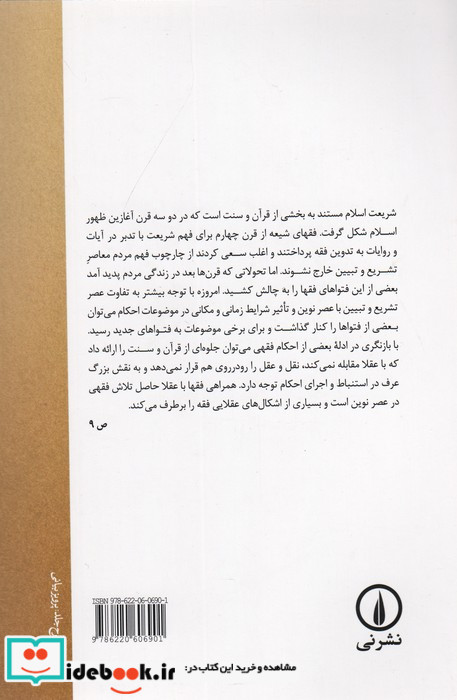 شریعت اسلام مستند به بخشی از قرآن و سنت است که در دو سه قرن آغازین ظهور
اسلام شکل گرفت. فقهای شیعه از قرن چهارم برای فهم شریعت با تدبر در آیات
و روایات به تدوین فقه پرداختند و اغلب سعی کردند از چارچوب فهم مردم معاصر
تشریع و تبیین خارج نشوند. اما تحولاتی که قرن‌ها بعد در زندگی مردم پدید آمد
بعضی از این فتواهای فقها را به چالش کشید. امروزه با توجه بیشتر به تفاوت عصر
تشریع و تبیین با عصر نوین و تأثیر شرایط زمانی و مکانی در موضوعات احکام می‌توان
بعضی از فتواها را کنار گذاشت و برای برخی موضوعات به فتواهای جدید رسید.
با بازنگری در ادلهٔ بعضی از احکام فقهی می‌توان جلوه‌ای از قرآن و سنت را ارائه داد
که با عقلا مقابله نمی‌کند، نقل و عقل را رودرروی هم قرار نمی‌دهد و به نقش بزرگ
عرف در استنباط و اجرای احکام توجه دارد. همراهی فقها با عقلا حاصل تلاش فقهی
در عصر نوین است و بسیاری از اشکال‌های عقلایی فقه را برطرف می‌کند.
ص ۹
جلد: پرویز بیانی
ISBN 978-622-06-0690-1
9 786220 606901
نشر نی
مشاهده و خرید این کتاب در:
idebook.ir